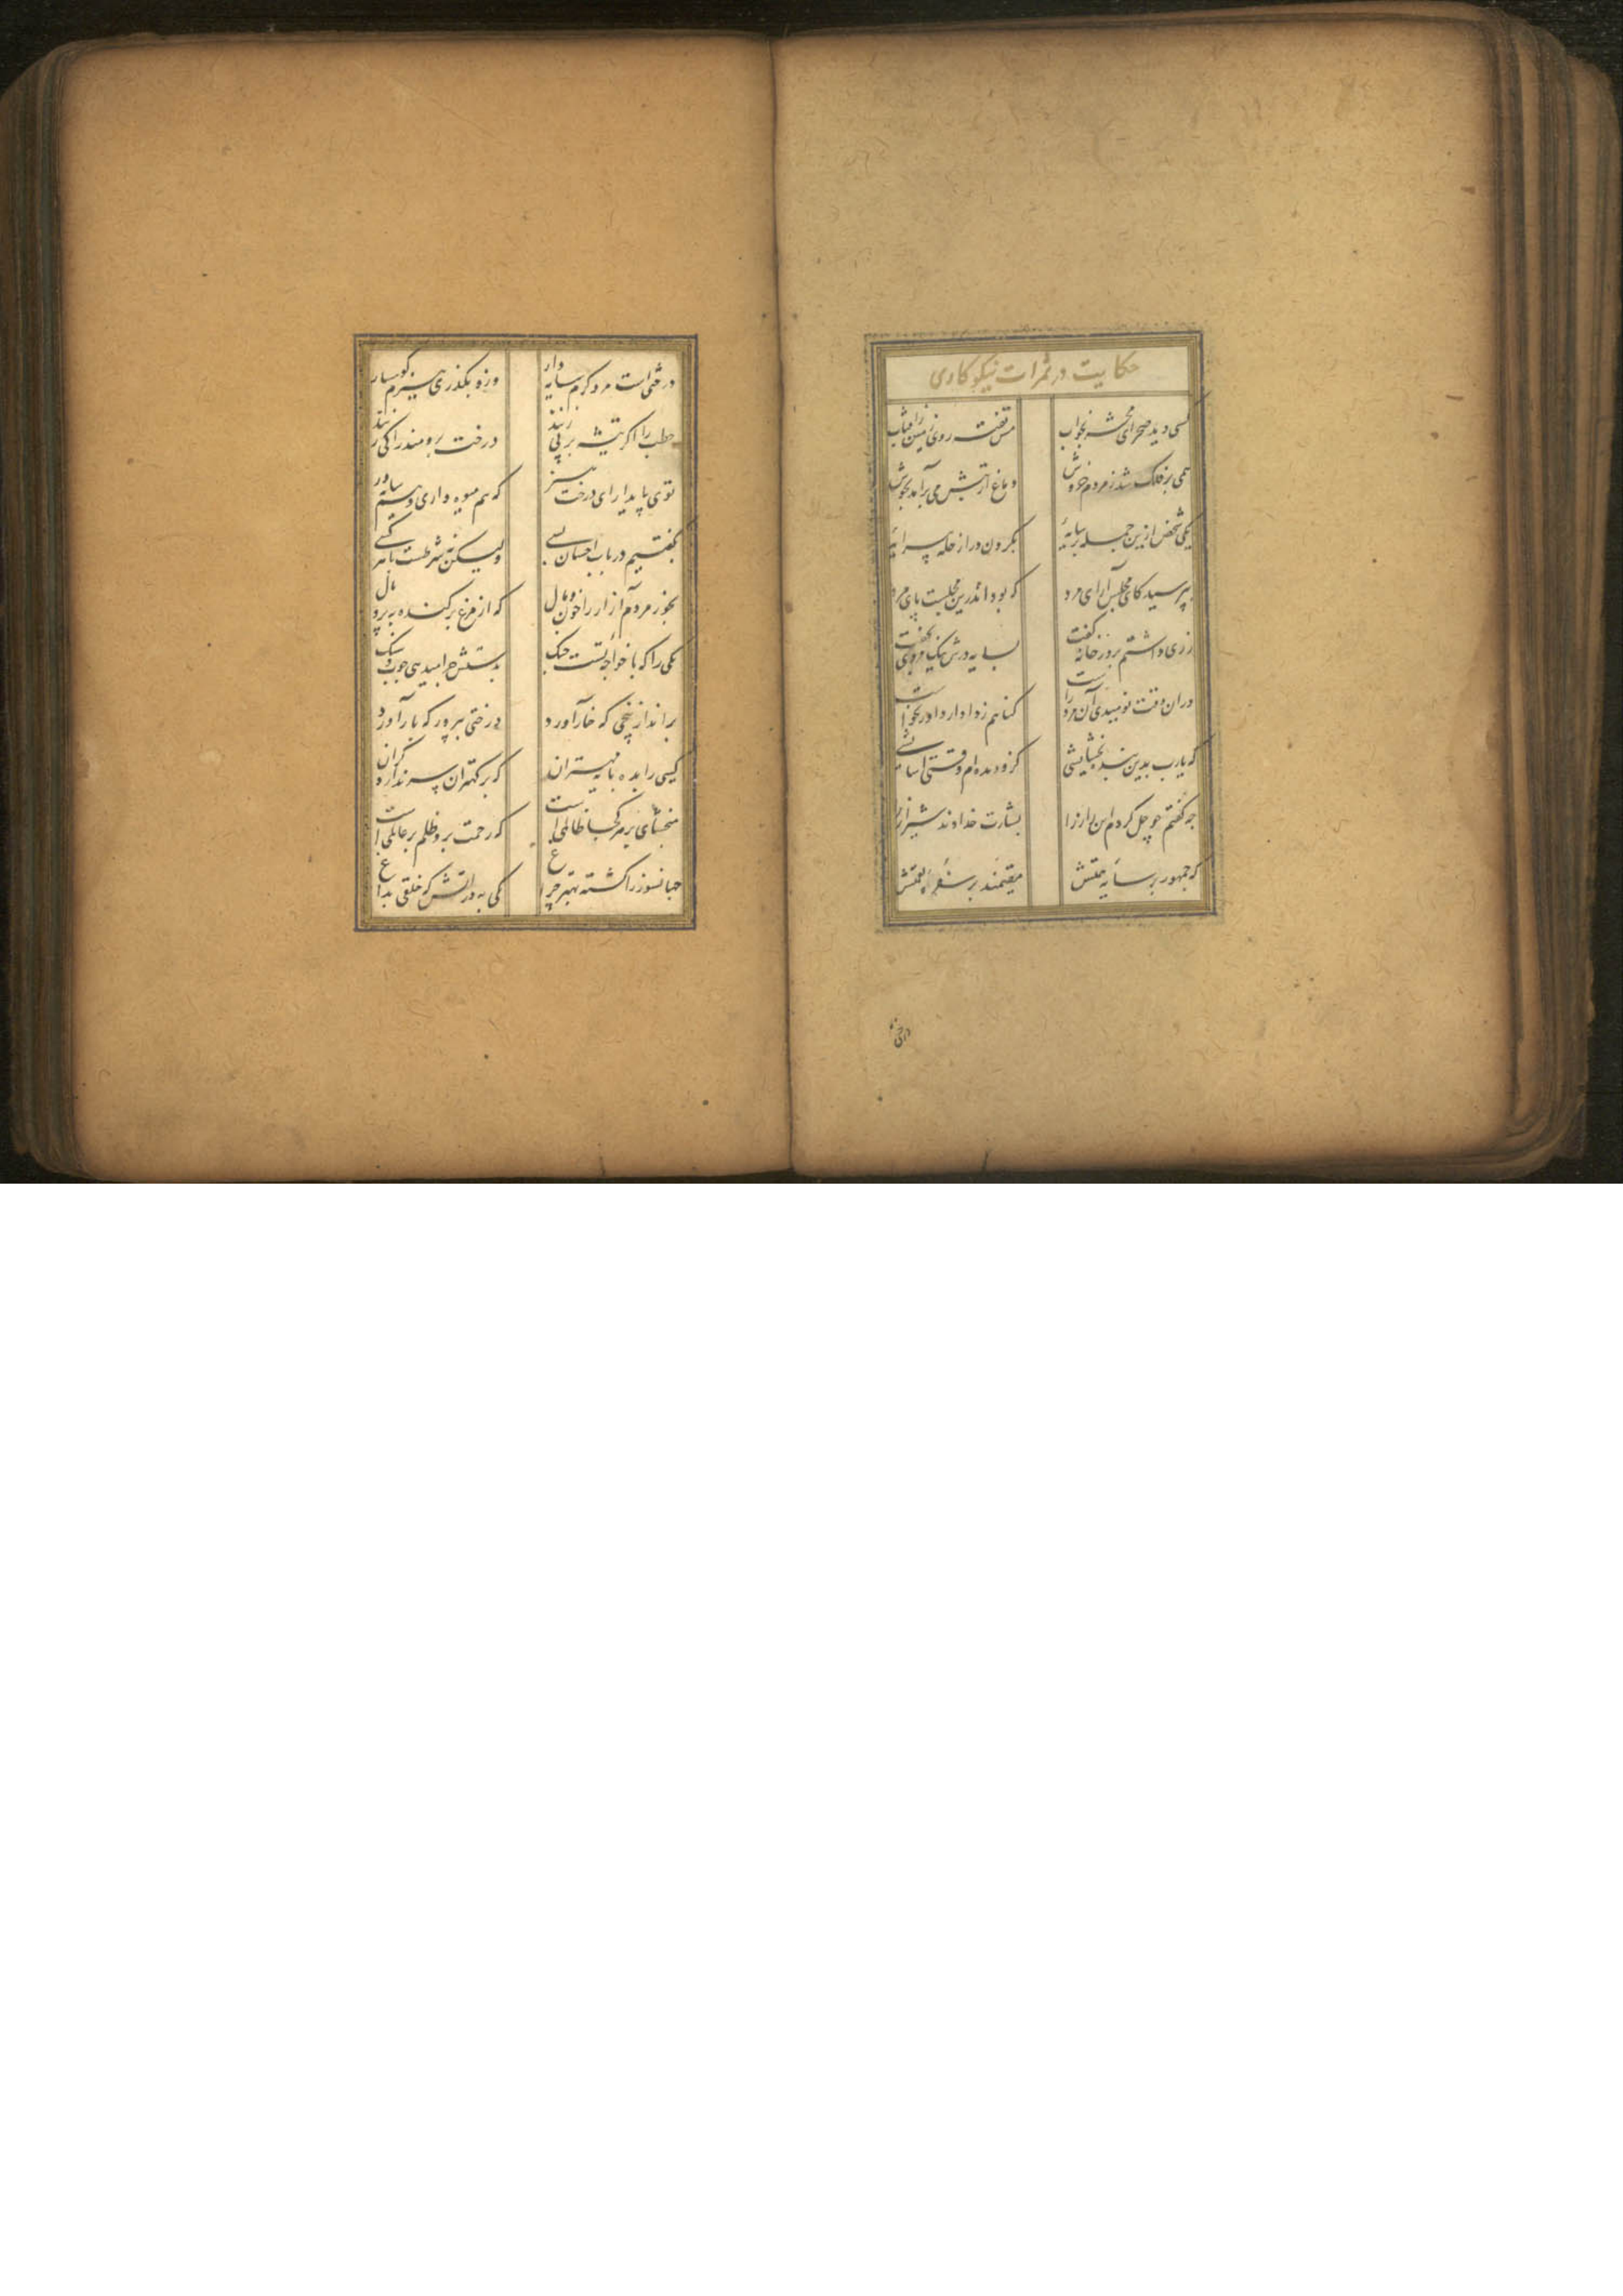 حکایت در ثمرات نیکوکاری
کسی دید صحرای محشر بخواب مس تفته روی زمین ز آفتاب
همی بر فلک شد ز مردم خروش دماغ از تبش می برآمد بجوش
یکی شخص ازین جمله در سایه بگردن در از حله پیرایه
بپرسید کای مجلس آرای مرد که بود اندرین مجلست پای مرد
رزی داشتم بر در خانه گفت بسایه درش نیک مردی بخفت
دران وقت نومیدی آن مرد راست گناهم ز دادار داور بخواست
که یارب بدین بنده بخشایشی کزو دیده ام وقتی آسایشی
چه گفتم چو حل کردم این راز را بشارت خداوند شیراز را
که جمهور بر سایه همتش مقیمند بر سفره نعمتش
درختی
درختی است مرد کرم سایه دار وزو بگذری هیزم کوهسار
حطب را اگر تیشه بر پی زنند درخت برومند را کی زنند
توی پایدار ای درخت هنر که هم میوه داری و هم سایه ور
بگفتیم در باب احسان بسی ولیکن نه شرطست با هر کسی
بخور مردم آزار را خون و مال که از مرغ بد کنده به پر و بال
یکی را که با خواجه تست جنگ بدستش چرا میدهی چوب و سنگ
بر انداز بیخی که خار آورد درختی بپرور که بار آورد
کسی را بده پایه مهتران که بر کهتران سر ندارد گران
مبخشای بر هر کجا ظالمی است که رحمت برو ظلم بر عالمی است
جهانسوز را کشته بهتر چراغ یکی به در آتش که خلقی بداغ